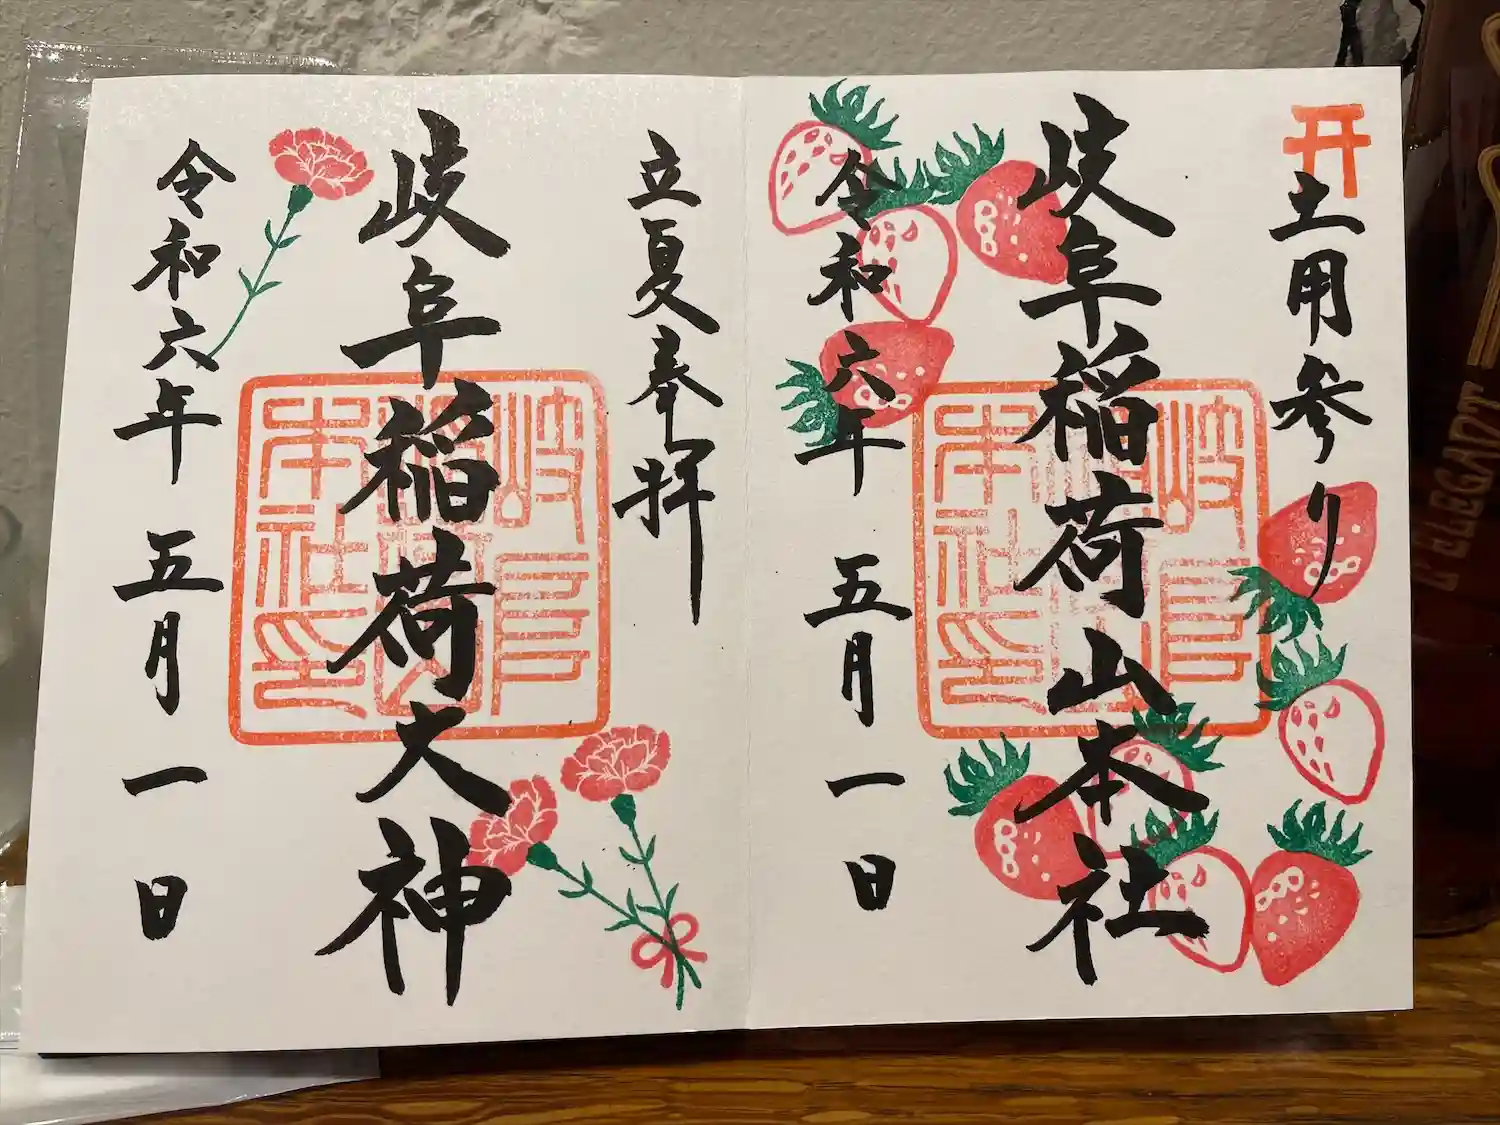 土用参り
岐阜稲荷山本社
令和六年 五月一日
立夏奉拝
岐阜稲荷大神
令和六年 五月一日
岐阜稲荷山本社印
岐阜稲荷山本社印